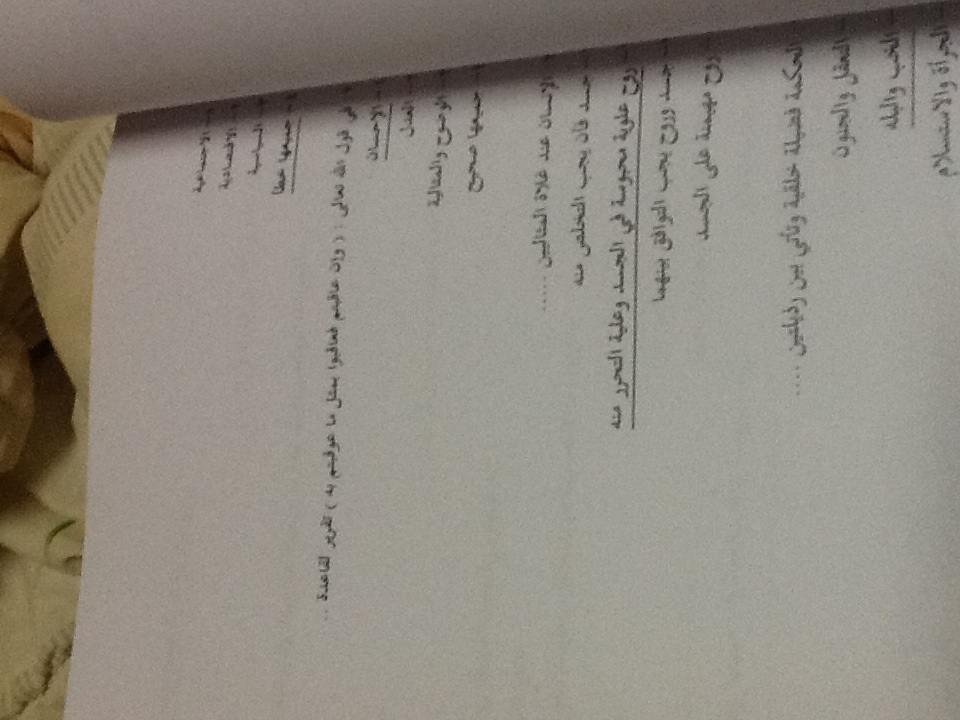 - الاجتماعية
- الاقتصادية
- السياسية
- جميعها خطأ
في قول الله تعالى : ( وإن عاقبتم فعاقبوا بمثل ما عوقبتم به ) تقرير لقاعدة ..
- الإحسان
- العدل
- الوضوح والمثالية
- جميعها صحيح
الإنسان عند غلاة المثاليين ......
- جسد فان يجب التخلص منه
- روح علوية محبوسة في الجسد وعلية التحرر منه
- جسد وروح يجب التوافق بينهما
- روح مهيمنة على الجسد
الحكمة فضيلة خلقية وتأتي بين رذيلتين ....
- التعقل والجنون
- الخب والبله
- الجرأة والاستسلام